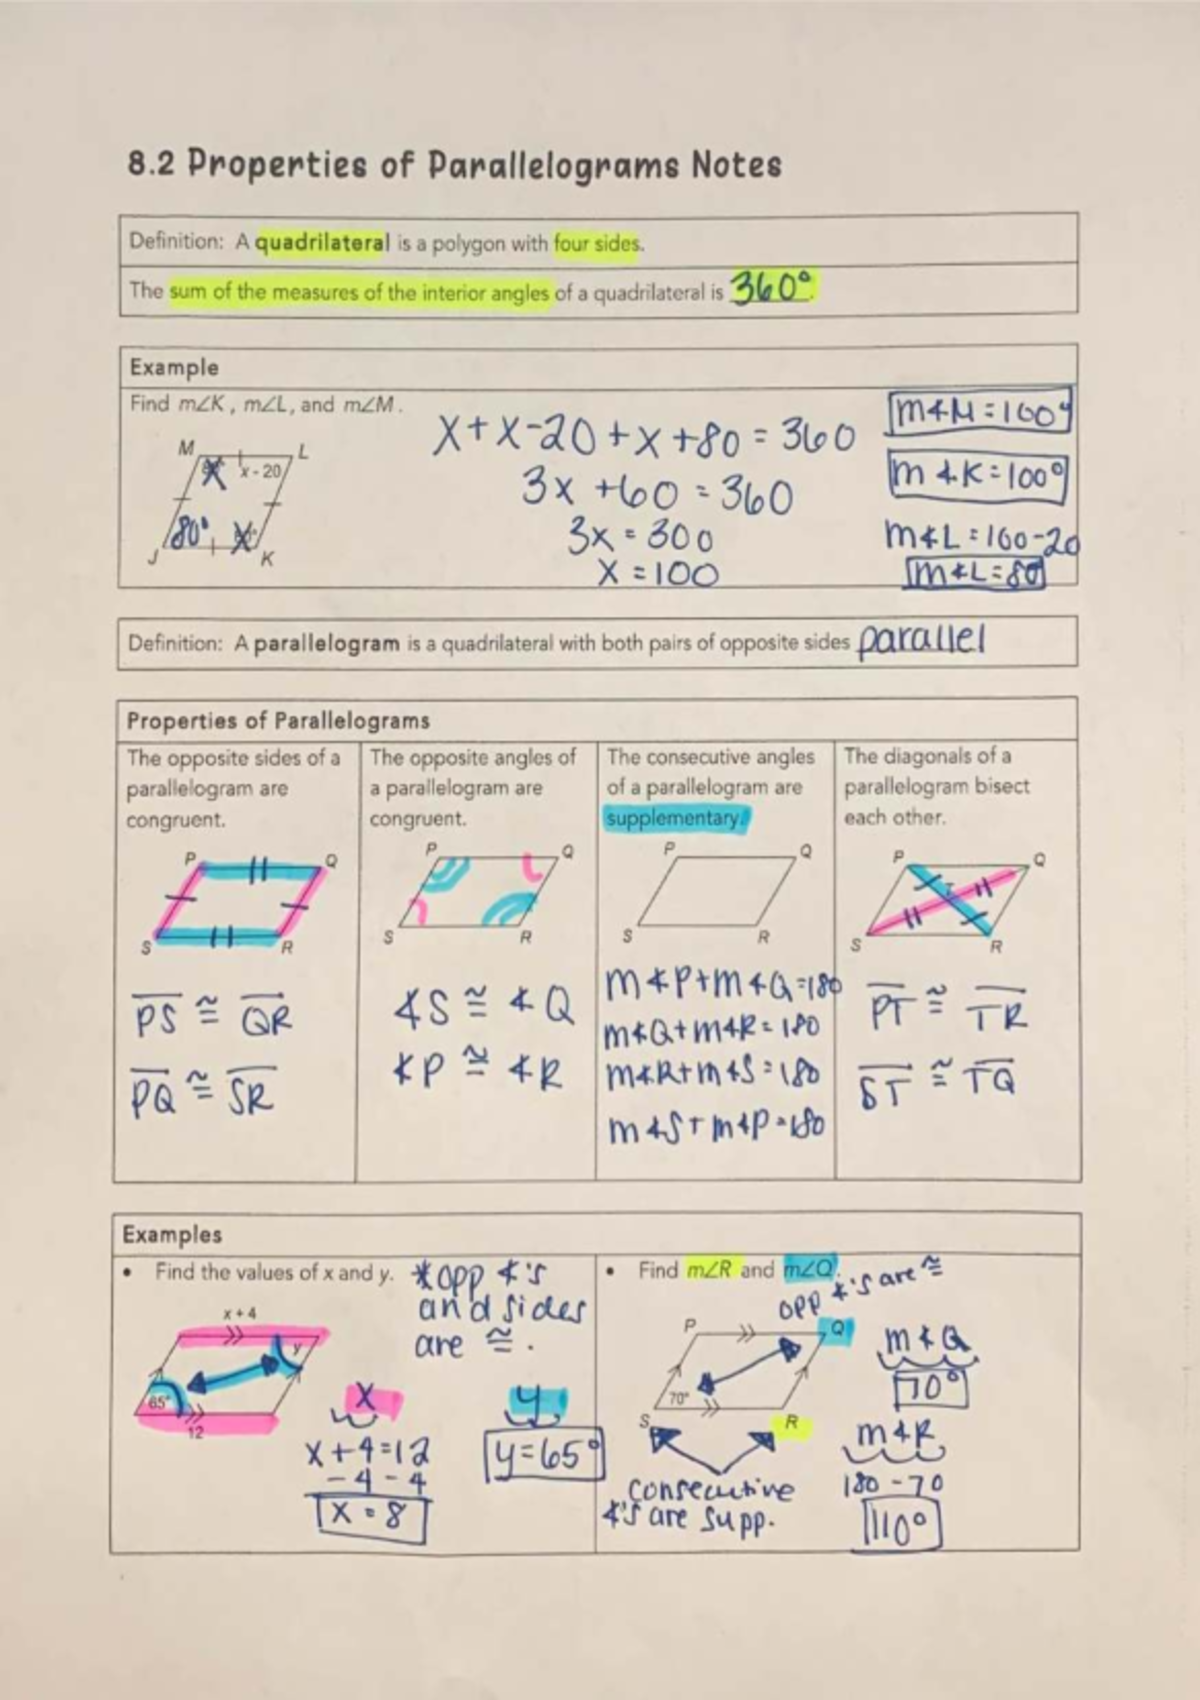 8.2 Properties of Parallelograms Notes
Definition: A quadrilateral is a polygon with four sides.
The sum of the measures of the interior angles of a quadrilateral is 360°.
Example
Find m∠K, m∠L, and m∠M.
M
L
x
x - 20
80°
x
J
K
x + x - 20 + x + 80 = 360
3x + 60 = 360
3x = 300
x = 100
m∡M = 100°
m∡K = 100°
m∡L = 100-20
m∡L = 80
Definition: A parallelogram is a quadrilateral with both pairs of opposite sides parallel
Properties of Parallelograms
The opposite sides of a
parallelogram are
congruent.
P
Q
S
R
PS ≅ QR
PQ ≅ SR
The opposite angles of
a parallelogram are
congruent.
P
Q
S
R
∡S ≅ ∡Q
∡P ≅ ∡R
The consecutive angles
of a parallelogram are
supplementary.
P
Q
S
R
m∡P + m∡Q = 180
m∡Q + m∡R = 180
m∡R + m∡S = 180
m∡S + m∡P = 180
The diagonals of a
parallelogram bisect
each other.
P
Q
T
S
R
PT ≅ TR
ST ≅ TQ
Examples
• Find the values of x and y.
*opp ∡'s
and sides
are ≅.
x + 4
y
65°
12
x
x + 4 = 12
- 4 - 4
x = 8
y
y = 65°
• Find m∠R and m∠Q.
opp ∡'s are ≅
P
Q
70°
S
R
consecutive
∡'s are supp.
m∡Q
70°
m∡R
180 - 70
110°